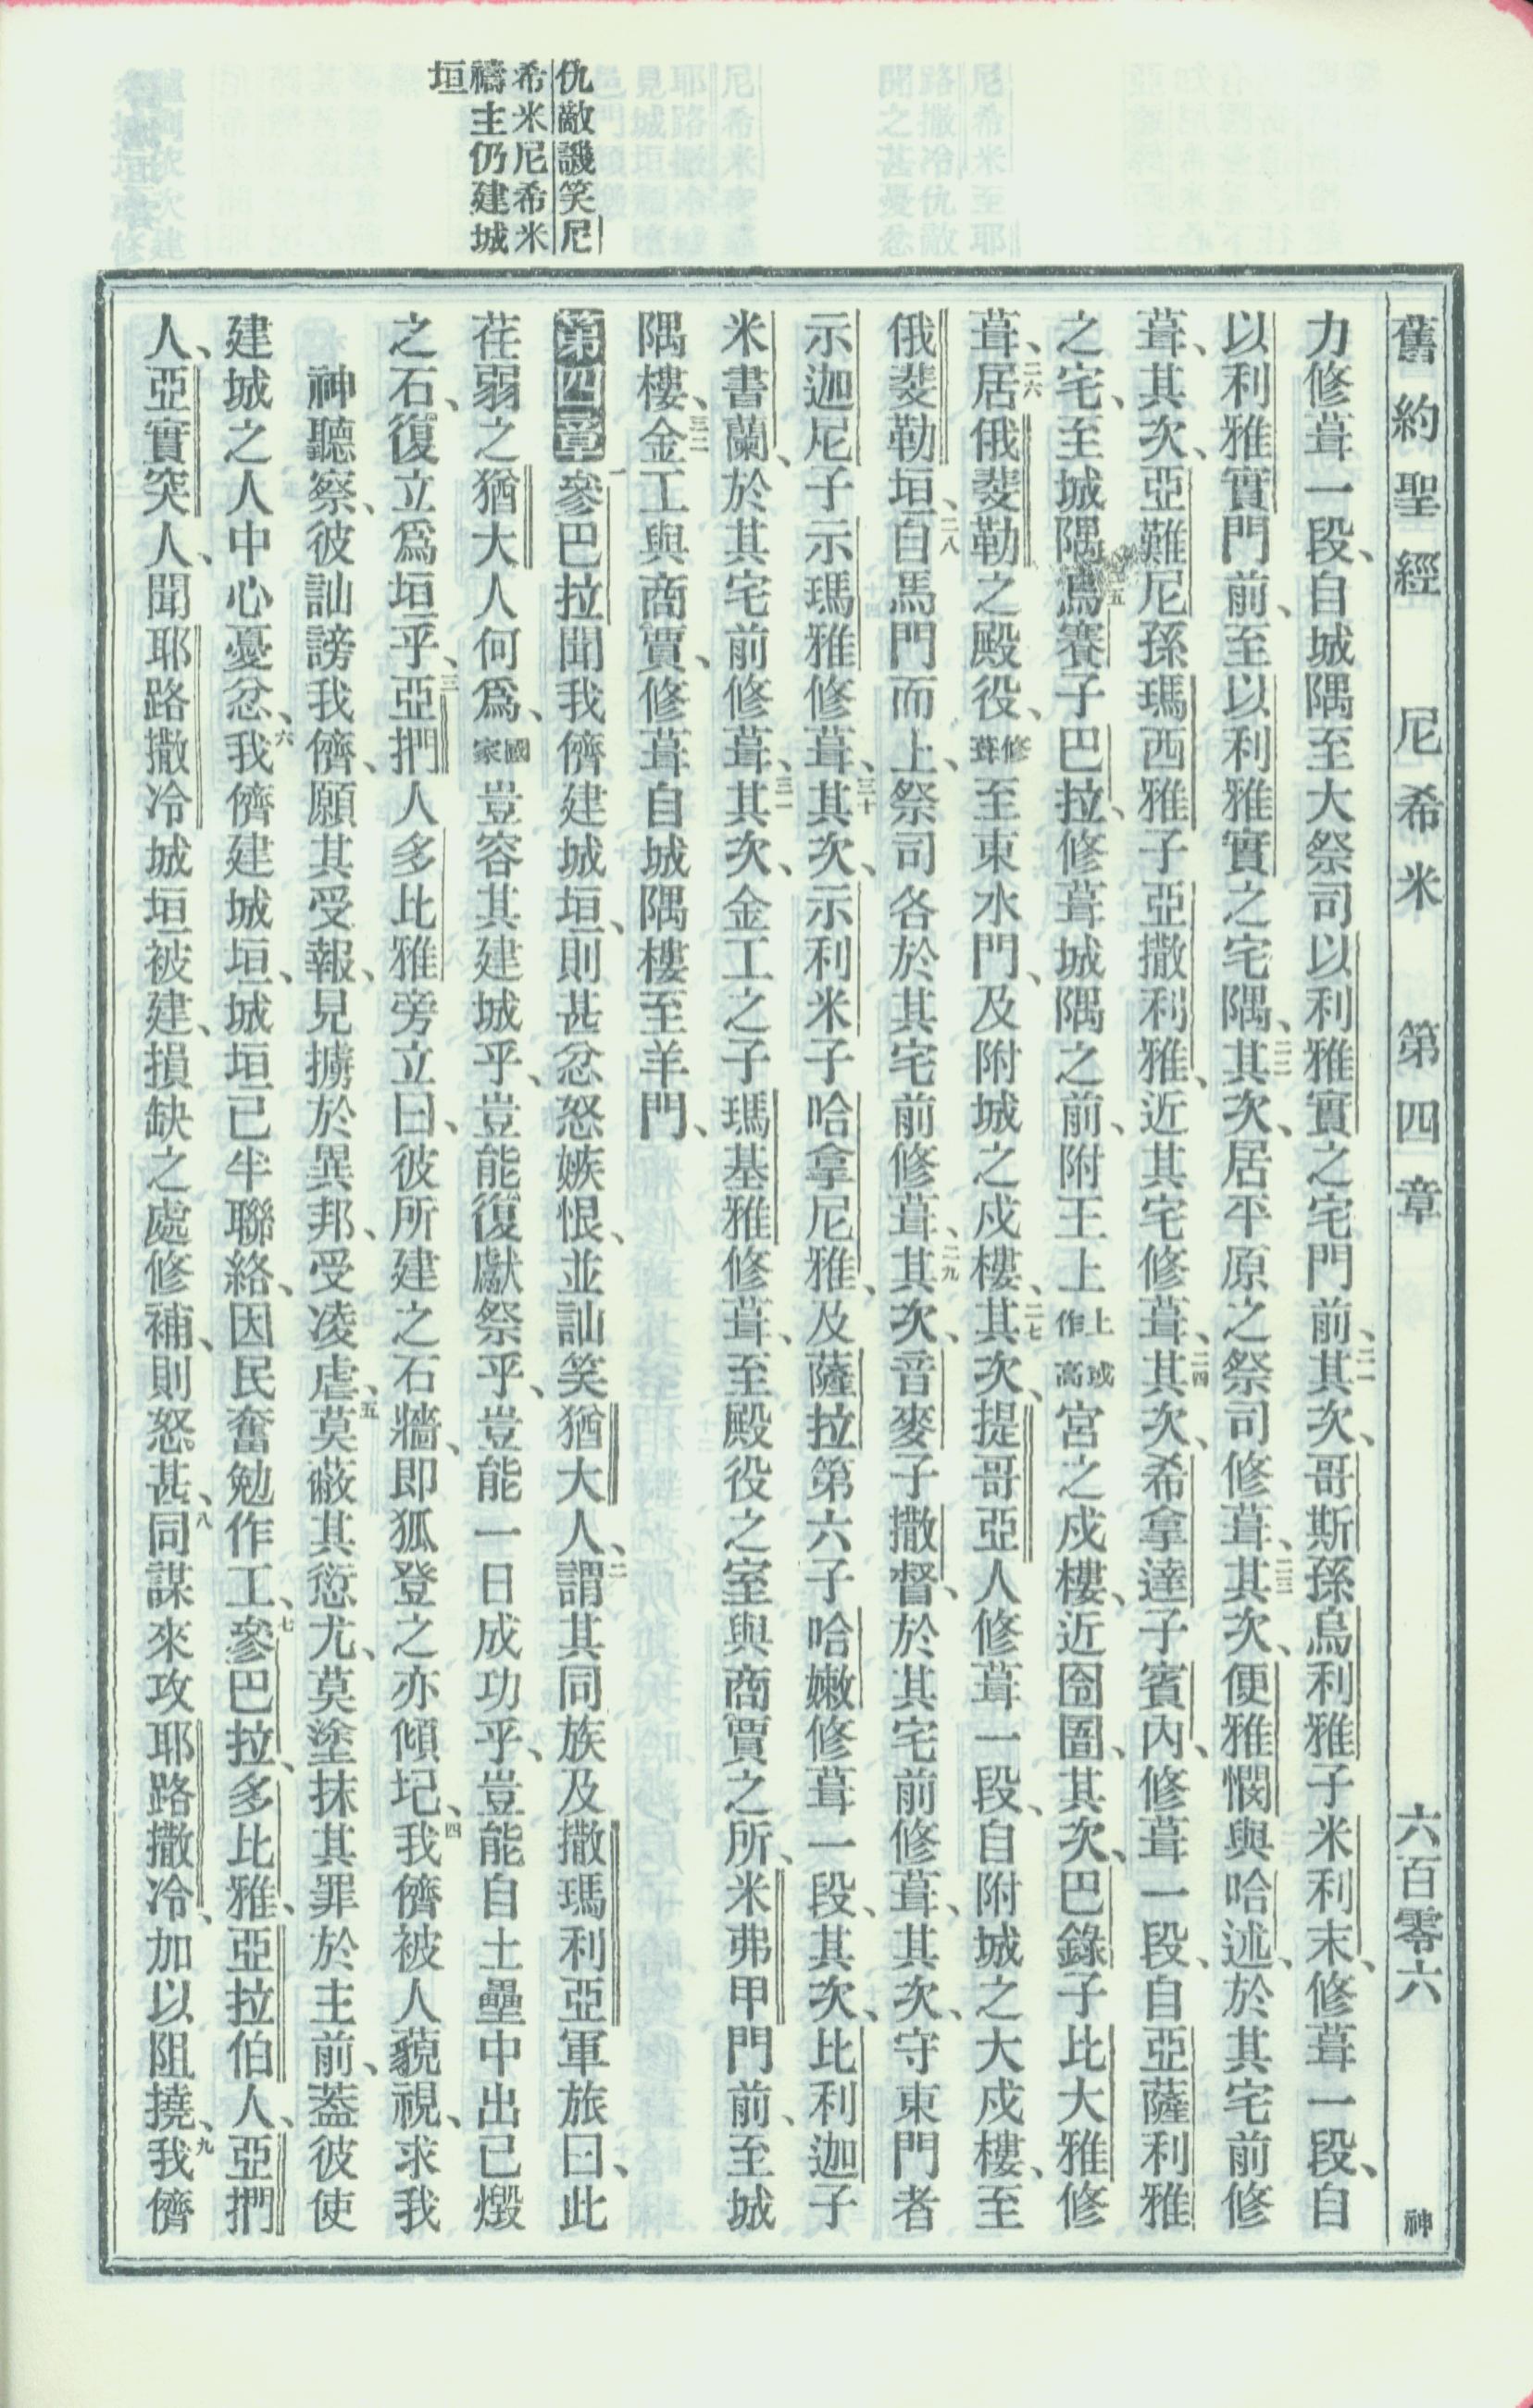 舊約聖經　尼希米　第四章　六百零六　神
力修葺一段、自城隅至大祭司以利雅實之宅門前、二一其次、哥斯孫烏利雅子米利末、修葺一段、自
以利雅實門前、至以利雅實之宅隅、二二其次、居平原之祭司修葺、二三其次、便雅憫與哈述、於其宅前修
葺、其次、亞難尼孫瑪西雅子亞撒利雅、近其宅修葺、二四其次、希拿達子賓內、修葺一段、自亞薩利雅
之宅、至城隅、二五烏賽子巴拉、修葺城隅之前、附王上上或作高宮之戍樓、近囹圄、其次、巴錄子比大雅修
葺、二六居俄斐勒之殿役、修葺至東水門、及附城之戍樓、二七其次、提哥亞人修葺一段、自附城之大戍樓、至
俄斐勒垣、二八自馬門而上、祭司各於其宅前修葺、二九其次、音麥子撒督、於其宅前修葺、其次、守東門者
示迦尼子示瑪雅修葺、三十其次、示利米子哈拿尼雅、及薩拉第六子哈嫩修葺一段、其次、比利迦子
米書蘭、於其宅前修葺、三一其次、金工之子瑪基雅修葺、至殿役之室與商賈之所、米弗甲門前、至城
隅樓、三二金工與商賈、修葺自城隅樓至羊門、
仇敵譏笑尼
希米尼希米
禱主仍建城
垣
第四章　一參巴拉聞我儕建城垣、則甚忿怒嫉恨、並訕笑猶大人、二謂其同族及撒瑪利亞軍旅曰、此
荏弱之猶大人何爲、國家豈容其建城乎、豈能復獻祭乎、豈能一日成功乎、豈能自土壘中出已燬
之石、復立爲垣乎、三亞捫人多比雅旁立曰、彼所建之石牆、即狐登之亦傾圮、四我儕被人藐視、求我
神聽察、彼訕謗我儕、願其受報、見擄於異邦、受凌虐、五莫蔽其愆尤、莫塗抹其罪於主前、蓋彼使
建城之人中心憂忿、六我儕建城垣、城垣已半聯絡、因民奮勉作工、七參巴拉、多比雅、亞拉伯人、亞捫
人、亞實突人、聞耶路撒冷城垣被建、損缺之處修補、則怒甚、八同謀來攻耶路撒冷、加以阻撓、九我儕